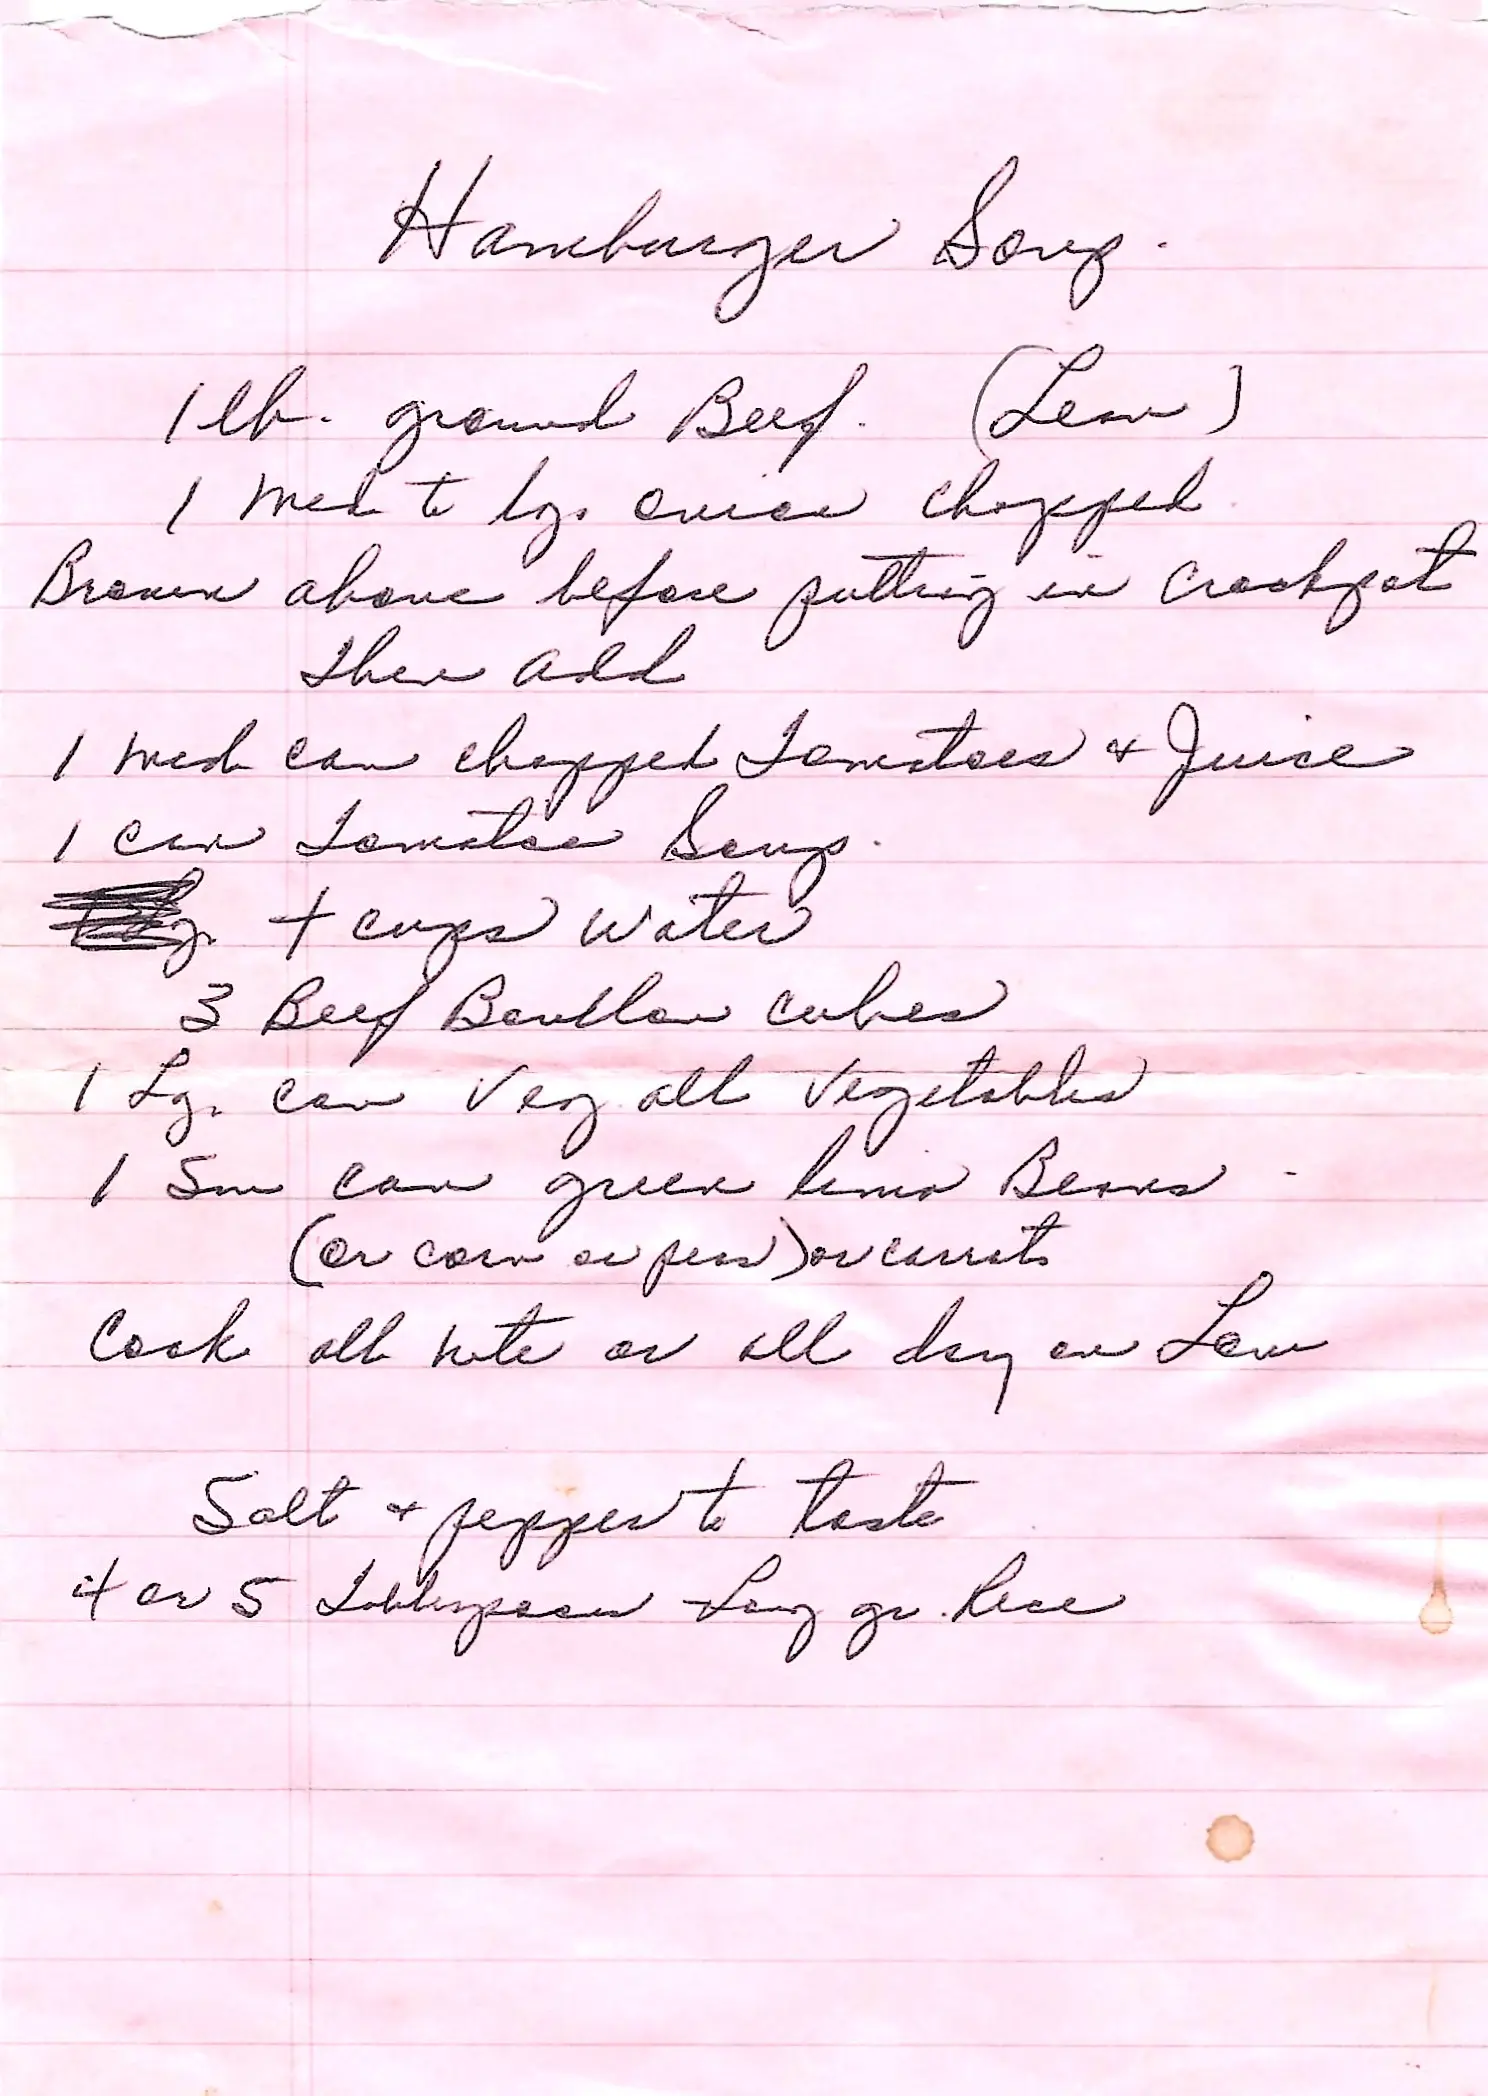 Hamburger Soup.
1 lb. ground Beef. (Lean)
1 med to lg. onion chopped.
Brown above before putting in Crockpot
then add
1 med can chopped Tomatoes & Juice
1 can Tomatoe Soup.
4 cups water
3 Beef Boullon cubes
1 Lg. can Veg. all Vegetables
1 Sm can green lima Beans -
(or corn or peas) or carrots
Cook all nite or all day on Low
Salt & pepper to taste
4 or 5 Tablespoons Long gr. Rice